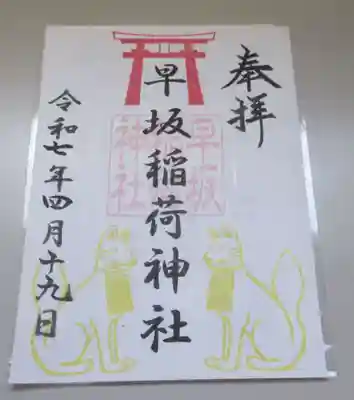 奉拝
早坂稲荷神社
早坂
神社
令和七年四月十九日